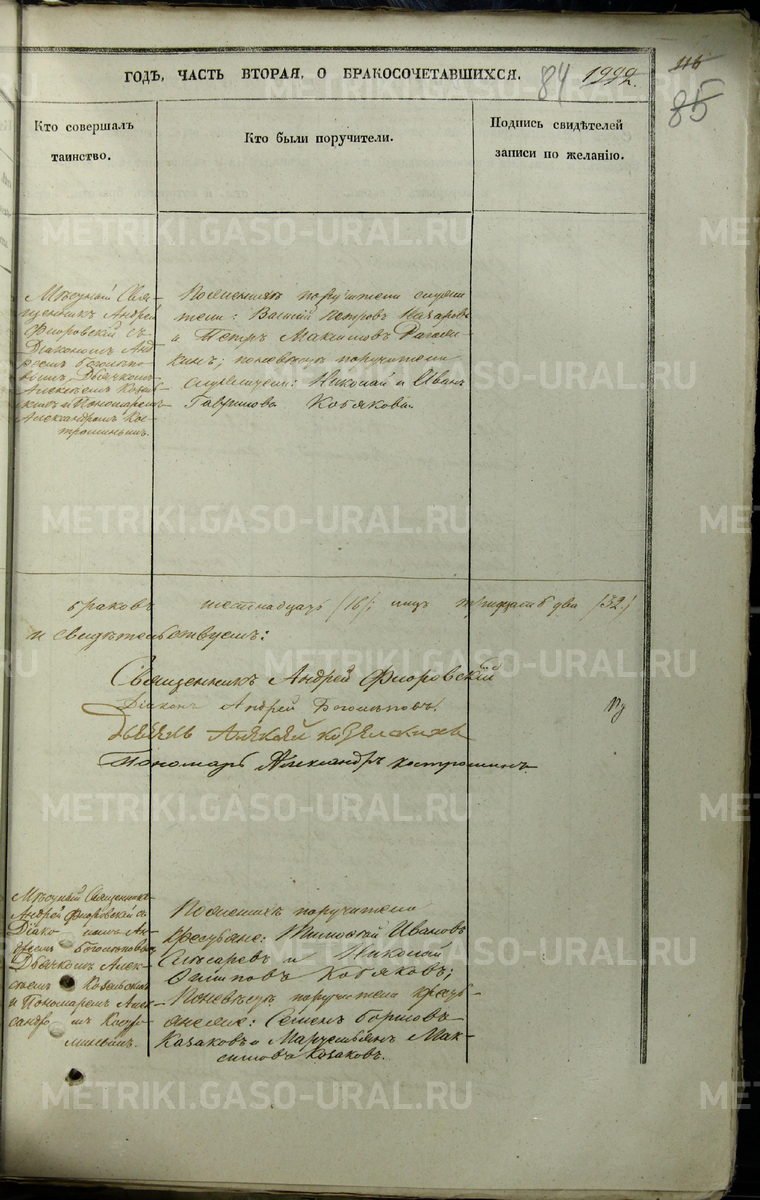 ГОДЪ, ЧАСТЬ ВТОРАЯ, О БРАКОСОЧЕТАВШИХСЯ.
84
116
85
Кто совершалъ
таинство.
Кто были поручители.
Подпись свидѣтелей
записи по желанію.
Мѣстный Свя-
щенникъ Андрей
Флоровскій съ
Діакономъ Анд-
реемъ Боголѣпо-
вымъ, Дьячкомъ
Алексѣемъ
и Пономаремъ
Александромъ Кос-
троминымъ.
По женихѣ поручители служи-
тели: Василій Петровъ Назаровъ
и Петръ Максимовъ
по невѣстѣ поручители
Николай и Иванъ
Гавриловы Кобяковы.
браковъ шестнадцать (16); лицъ тридцать два (32)
и свидѣтельствуемъ:
Священникъ Андрей Флоровскій
Діаконъ Андрей Боголѣповъ.
Дьячекъ Алексѣй
Пономарь Александръ Костроминъ.
Мѣстный Священникъ
Андрей Флоровскій съ
Діакономъ Ан-
дреемъ Боголѣповымъ
Дьячкомъ Алек-
сѣемъ
и Пономаремъ Алек-
сандромъ Костро-
минымъ.
По женихѣ поручители
крестьяне: Тимофей Ивановъ
Слесаревъ и Николай
Филиповъ Кобяковъ;
По невѣстѣ поручители кресть-
янские: Семенъ Борисовъ
Казаковъ и Мак-
симовъ Казаковъ.
METRIKI.GASO-URAL.RU